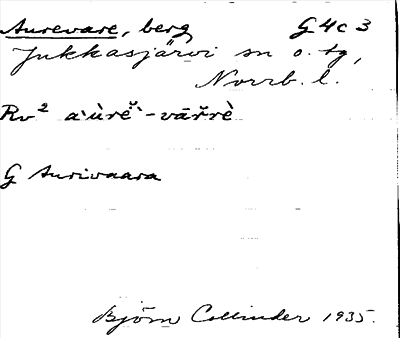 Aurevare, berg G4c3
Jukkasjärvi sn o. tg,
Norrb. l.
Rv² a`ùrĕ`-vāřrè
G Aurivaara
Björn Collinder 1935.